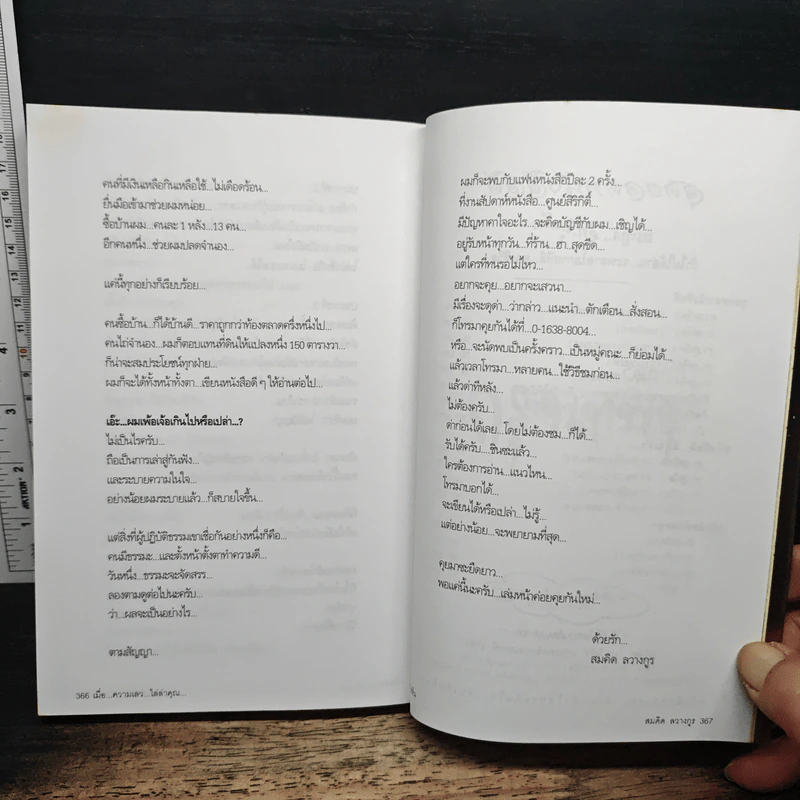 คนที่มีเงินเหลือกินเหลือใช้...ไม่เดือดร้อน...
ยื่นมือเข้ามาช่วยผมหน่อย...
ซื้อบ้านผม...คนละ 1 หลัง...13 คน...
อีกคนหนึ่ง...ช่วยผมปลดจำนอง...
แค่นี้ทุกอย่างก็เรียบร้อย...
คนซื้อบ้าน...ก็ได้บ้านดี...ราคาถูกกว่าท้องตลาดครึ่งหนึ่งไป...
คนไถ่จำนอง...ผมก็ตอบแทนที่ดินให้แปลงหนึ่ง 150 ตารางวา...
ก็น่าจะสมประโยชน์ทุกฝ่าย...
ผมก็จะได้ทั้งหน้าทั้งตา...เขียนหนังสือดี ๆ ให้อ่านต่อไป...
เอ๊ะ...ผมเพ้อเจ้อเกินไปหรือเปล่า...?
ไม่เป็นไรครับ...
ถือเป็นการเล่าสู่กันฟัง...
และระบายความในใจ...
อย่างน้อยผมระบายแล้ว...ก็สบายใจขึ้น...
แต่สิ่งที่ผู้ปฏิบัติธรรมเขาเชื่อกันอย่างหนึ่งก็คือ...
คนมีธรรมะ...และตั้งหน้าตั้งตาทำความดี...
วันหนึ่ง...ธรรมะจะจัดสรร...
ลองตามดูต่อไปนะครับ...
ว่า...ผลจะเป็นอย่างไร...
ตามสัญญา...
366 เมื่อ...ความเลว...ไล่ล่าคุณ...
ผมก็จะพบกับแฟนหนังสือปีละ 2 ครั้ง...
ที่งานสัปดาห์หนังสือ...ศูนย์สิริกิติ์...
มีปัญหาคาใจอะไร...จะคิดบัญชีกับผม...เชิญได้...
อยู่รับหน้าทุกวัน...ที่ร้าน...ฮา...สุดขีด...
แต่ใครที่ทนรอไม่ไหว...
อยากจะคุย...อยากจะเสวนา...
มีเรื่องจะดุด่า...ว่ากล่าว...แนะนำ...ตักเตือน...สั่งสอน...
ก็โทรมาคุยกันได้ที่...0-1638-8004...
หรือ...จะนัดพบเป็นครั้งคราว...เป็นหมู่คณะ...ก็ย่อมได้...
แล้วเวลาโทรมา...หลายคน...ใช้วิธีชมก่อน...
แล้วด่าทีหลัง...
ไม่ต้องครับ...
ด่าก่อนได้เลย...โดยไม่ต้องชม...ก็ได้...
รับได้ครับ...ชินซะแล้ว...
ใครต้องการอ่าน...แนวไหน...
โทรมาบอกได้...
จะเขียนได้หรือเปล่า...ไม่รู้...
แต่อย่างน้อย...จะพยายามที่สุด...
คุยมาซะยืดยาว...
พอแค่นี้นะครับ...เล่มหน้าค่อยคุยกันใหม่...
ด้วยรัก...
สมคิด ลวางกูร
สมคิด ลวางกูร 367